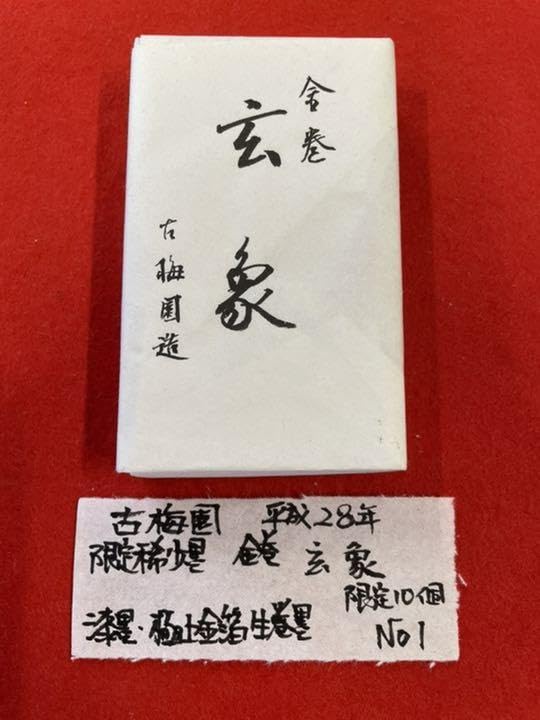 金巻
玄象
古梅園造
古梅園 平成28年
限定稀少墨 金巻 玄象
限定10個
漆墨・極上金箔生巻墨 No1